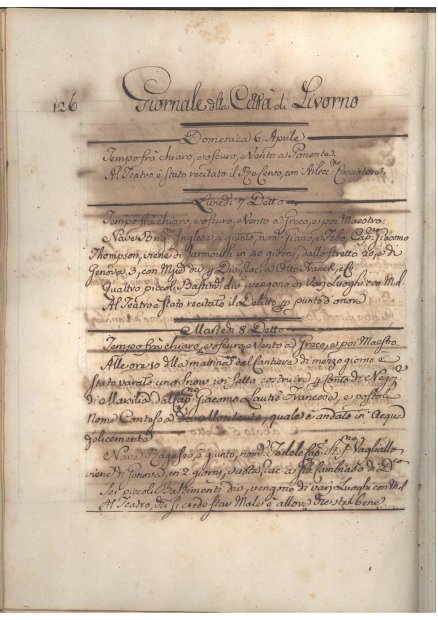 126
Giornale della Città di Livorno
Domenica 6 Aprile
Tempo frà chiaro, e oscuro, e Vento a Ponente
Al Teatro è stato recitato il con Arlecc.no Cacciatore
Lunedì 7 Detto
Tempo frà chiaro, e oscuro, e Vento a Greco, e poi Maestro
Nave Inglese, è giunto, nom. Cap.no Giacomo
Thompson, viene di Jarmouth in 40 giorni, dallo stretto 20, e da
Genova 3, con div. e
Quattro piccoli Bastim. div. vengono da Varj Luoghi con M.
Al Teatro è stato recitato il Delitto p punto d'onore
Martedì 8 Detto
Tempo frà chiaro, e oscuro, e Vento a Greco, e poi Maestro
Alle ore 10 della mattina dal Cantiere di mezzo giorno è
stato varato uno Snow ivi fatto costruire p Conto de Neg.
di Marsilia dal Cap. Giacomo Lautié Francese, e postoli
nome Contessa quale è andato in Acqua
felicemente
Nave Ragusea, è giunto, nom. Fedele Cap.no
viene di Genova in 2 giorni, vuota,
Sei piccoli Bastimenti div. vengono di varj Luoghi con M.
Al Teatro, chi si crede star Male è allora che stà bene